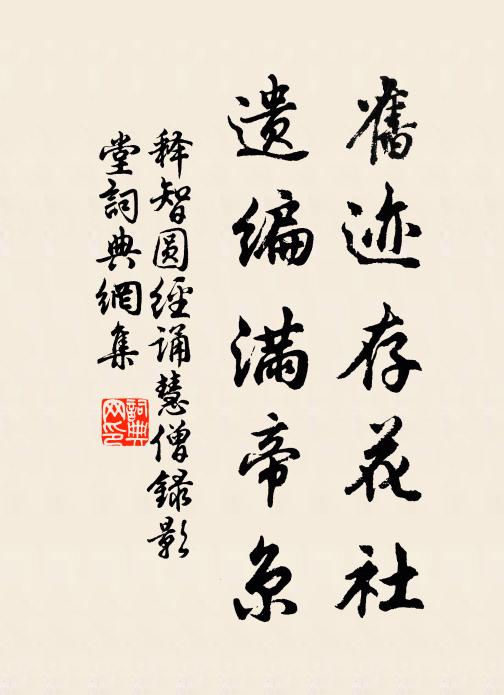 舊迹存花社
遗编满帝京
释智圆經诵慧僧録影
堂詞典網集
詞典网印